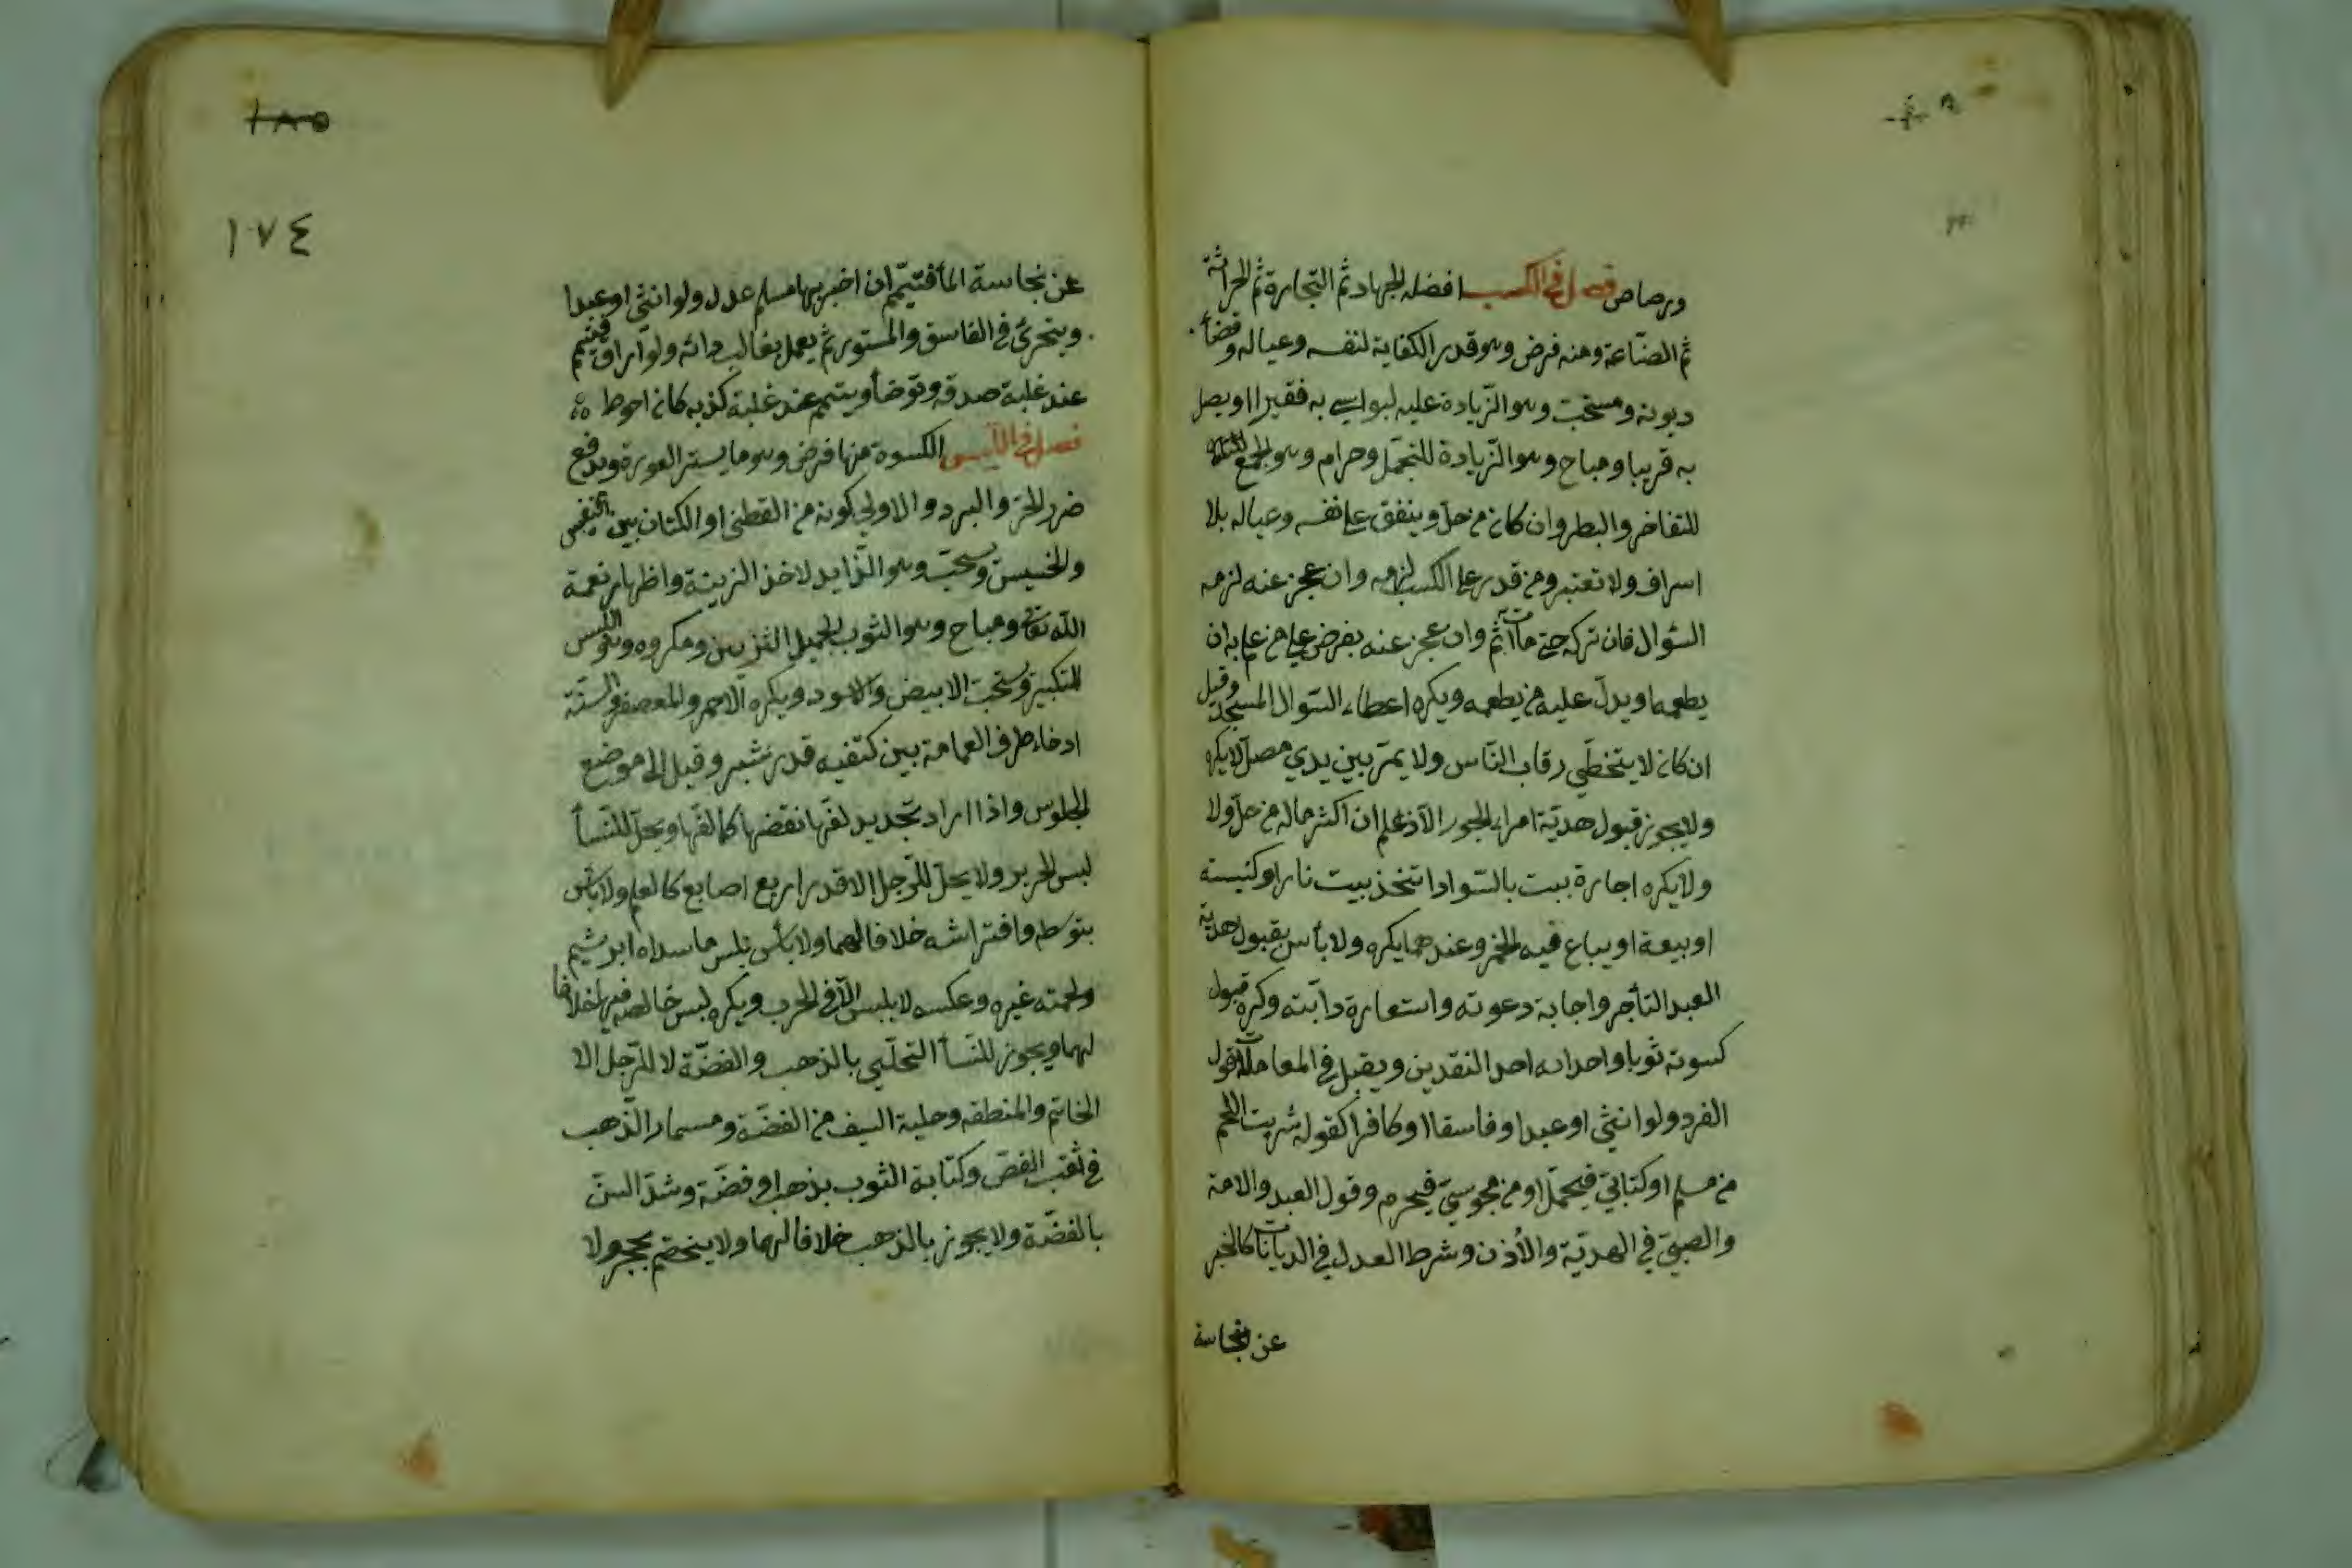 ورصاص فصل في الكسب افضله الجهاد ثم التجارة ثم الحراثة
ثم الصناعة ومنه فرض وهو قدر الكفاية لنفسه وعياله وقضأ
ديونه ومستحب وهو الزيادة عليه ليواسي به فقيرا او يصل
به قريبا ومباح وهو الزيادة للتجمل وحرام وهو الجمع
للتفاخر والبطر وان كان من حل وينفق على نفسه وعياله بلا
اسراف ولا تعتير ومن قدر على الكسب لزمه وان عجز عنه لزمه
السؤال فان تركه حتى مات اثم وان عجز عنه يفرض على من علم به ان
يطعمه او يدل عليه من يطعمه ويكره اعطاء السوال المسجد وقيل
ان كان لا يتخطى رقاب الناس ولا يمر بين يدي مصل لا يكره
ولا يجوز قبول هدية امراء الجور الا اذا علم ان اكثر ماله من حل ولا
ولا يكره اجارة بيت بالسواد اتتخذ بيت نار او كنيسته
او بيعة او يباع فيه الخمر وعندهما يكره ولا بأس بقبول هدية
العبد التأجر واجابة دعوته واستعارة دابته وكره قبول
كسوته ثوبا واهدائه احد النقدين ويقبل في المعاملات قول
الفرد ولو انثى او عبدا وفاسقا او كافرا كقوله شريت اللحم
من مسلم او كتابي فيحمل او من مجوسي فيحرم وقول العبد والامة
والصبي في الهدية والأذن وشرط العدل في الديانات كالخبر
عن نجاسة
١٨٥
١٧٤
عن نجاسة المأ فتيمم ان اخبر بها مسلم عدل ولو انثى او عبدا
ويتحرى في الفاسق والمستور ثم يعمل بغالب رائه ولو اراق فتيمم
عند غلبة صدقه وتوضأ ويتيمم عند غلبة كذبه كان احوط
فصل في اللبس الكسوة منها فرض وهو ما يستر العورة ويدفع
ضرر الحر والبرد والاولى كونه من القطن او الكتان بين النفيس
والخسيس ومستحب وهو الزايد لاخذ الزينة واظهار نعمة
الله تعالى ومباح وهو الثوب الجميل التزيين ومكروه وهو اللبس
للتكبر ويستحب الابيض والاسود ويكره الاحمر والمعصفر والسنة
ادخاء طرف العمامة بين كتفيه قدر شبر وقيل الى موضع
الجلوس واذا اراد تجديد لفها نقضها كما لفها ويحل للنسأ
لبس الحرير ولا يحل للرجل الا قدر اربع اصابع كالعلم ولا بأس
بتوسطه وافتراشه خلافا لهما ولا بأس بلبس ما سداه ابريشيم
ولحمته غيره وعكسه لا يلبس الا في الحرب ويكره لبس خالصه فيها خلافا
لهما ويجوز للنسأ التحلي بالذهب والفضة لا للرجل الا
الخاتم والمنطقه وحلية السيف من الفضة ومسمار الذهب
في ثقب الفص وكتابة الثوب بذهب او فضة وشد السن
بالفضة ولا يجوز بالذهب خلافا لهما ولا يتختم بحجر ولا